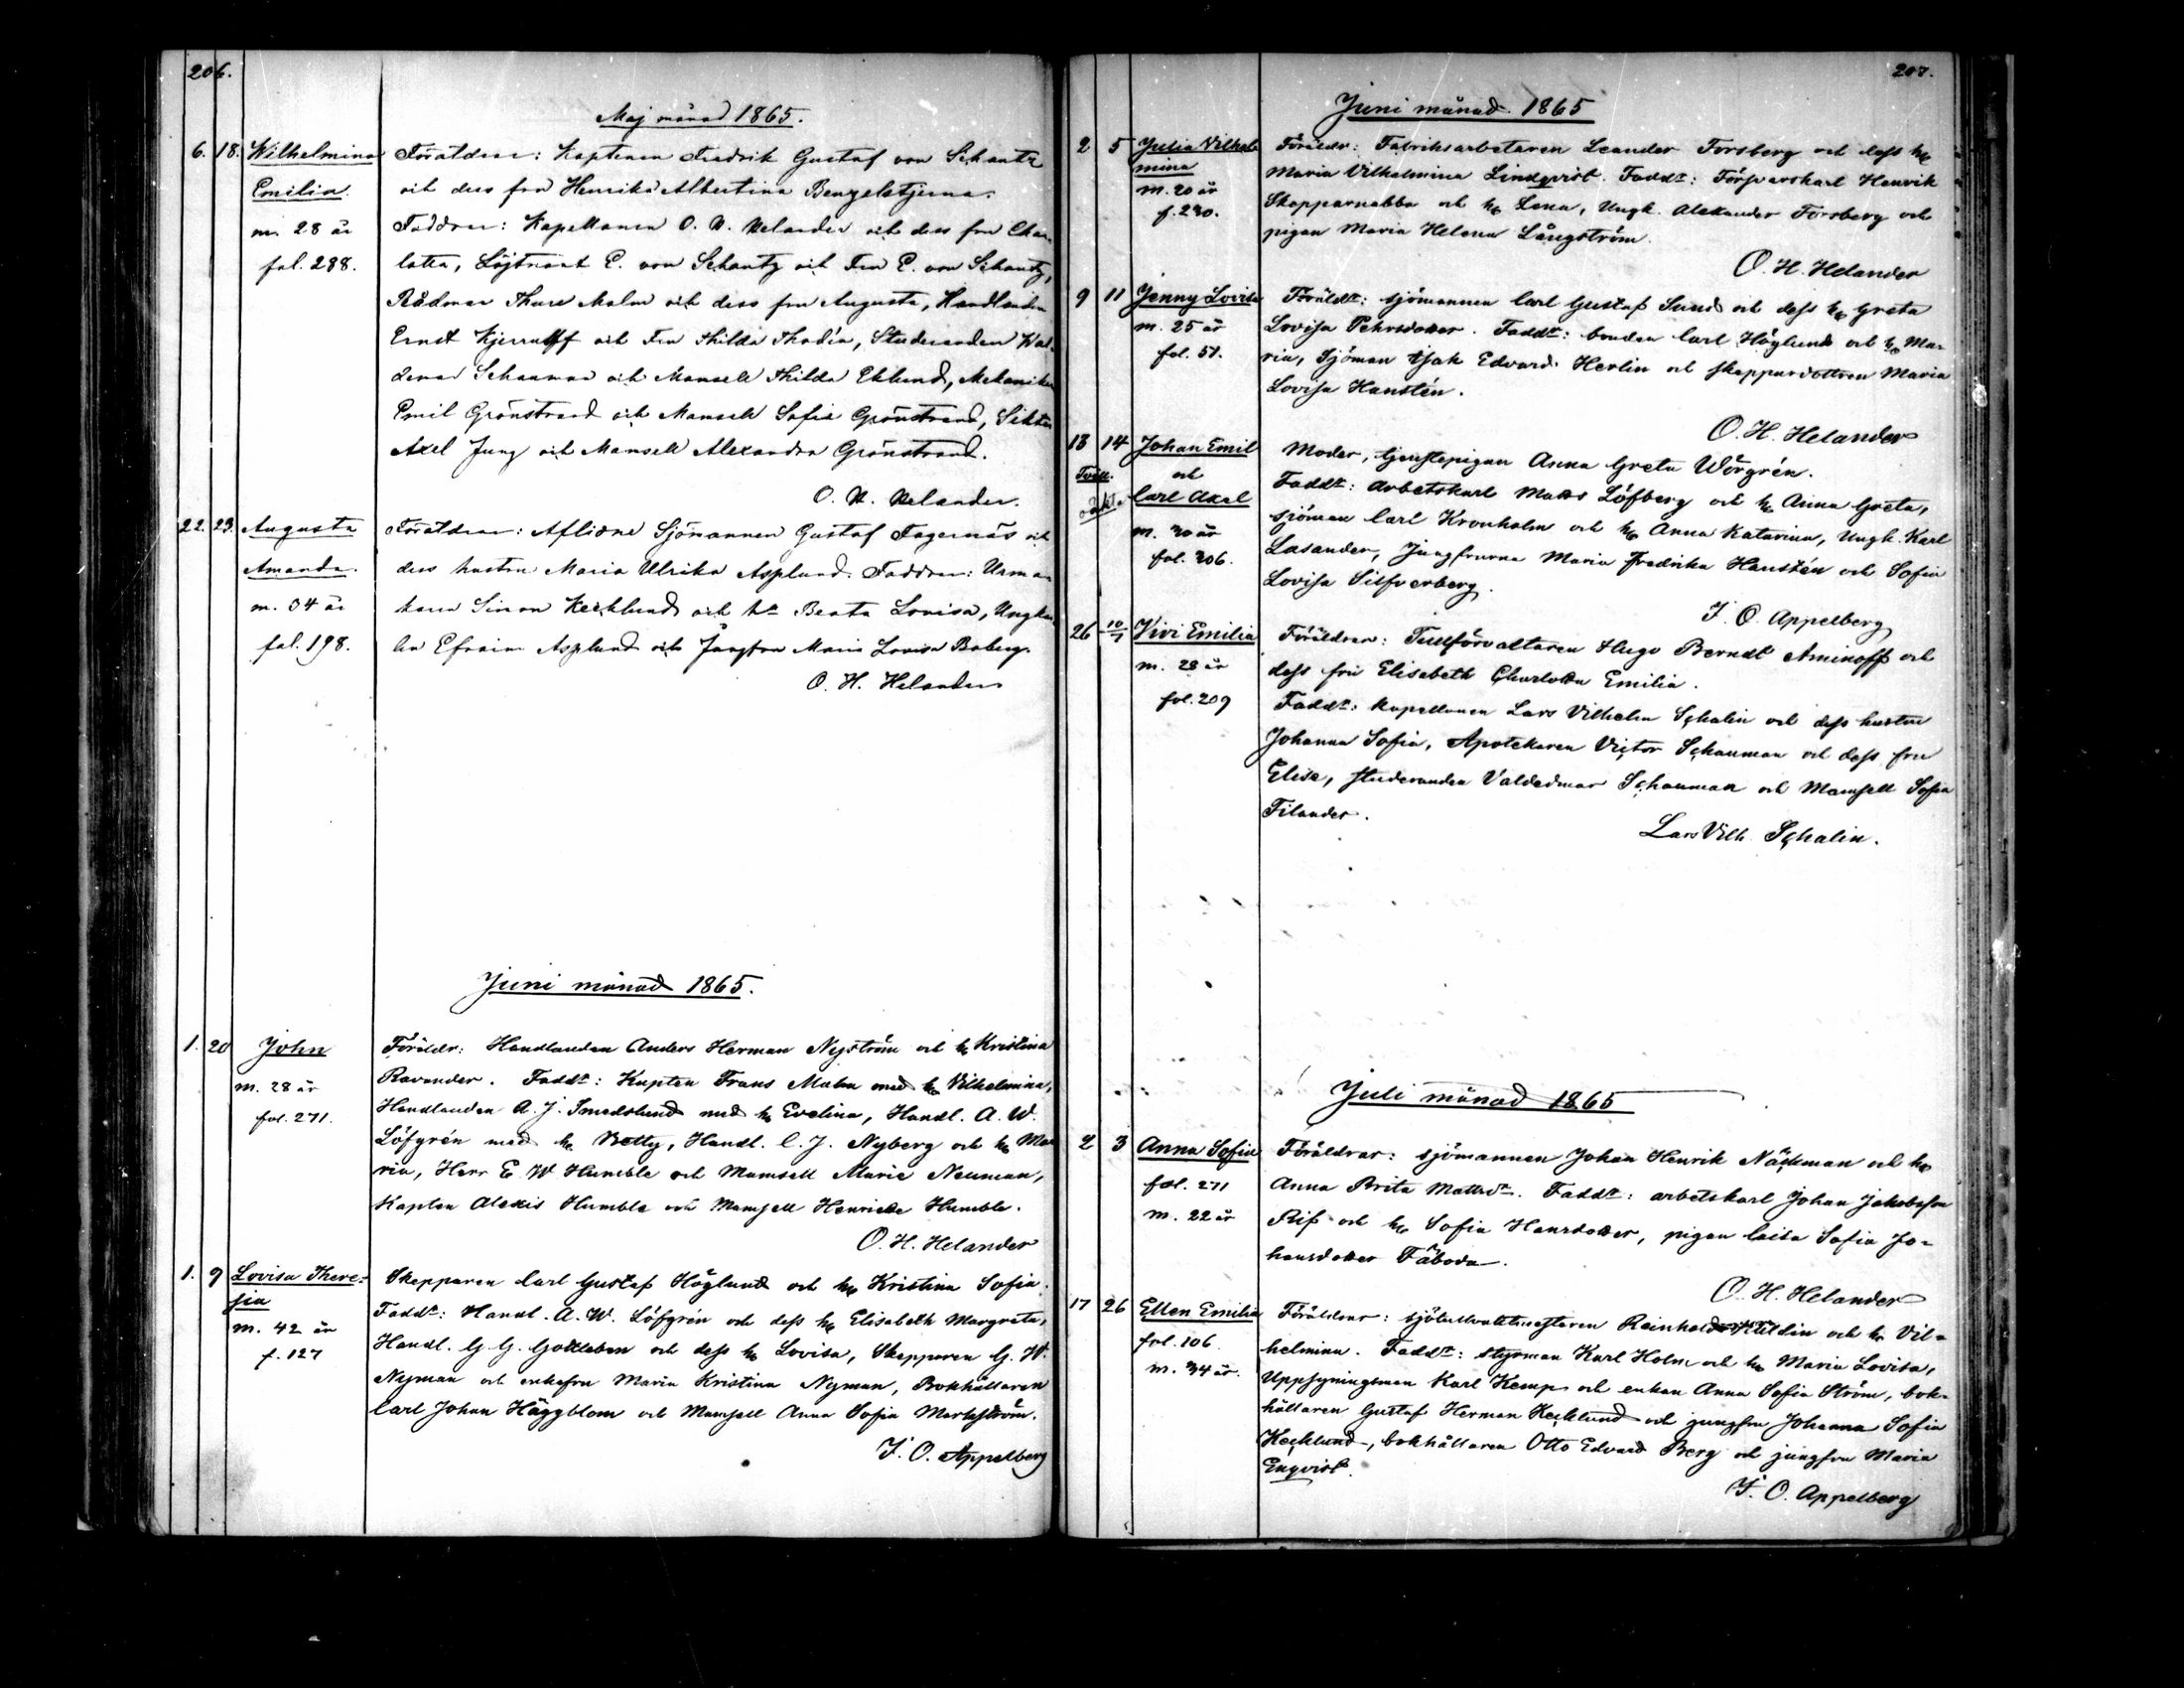 206.
Maj månad 1865.
6. 18. Wilhelmina Föräldrar: Kaptenen Fredrik Gustaf von Schantz
Emilia. och dess fru Henrika Albertina Bengelstjerna.
m. 28 år Faddrar: Kapellanen O. H. Helander och dess fru Char
fol. 288. lotta, Löjtnant E. von Schantz och Fru E. von Schantz,
Rådman Thure Malm och dess fru Augusta, Handlanden
Ernst Kjerrulff och Fru Hilda Thodén, Studeranden Wal-
demar Schauman och Mamsell Hilda Eklund, Mekaniker
Emil Grönstrand och Mamsell Sofia Grönstrand,
Axel Jung och Mamsell Alexandra Grönstrand.
O. H. Helander.
22. 23. Augusta Föräldrar: Aflidne Sjömannen Gustaf Fagernäs och
Amanda. dess hustru Maria Ulrika Asplund. Faddrar: Urma-
m. 34 år karen Simon Kecklund och hu Beata Lovisa, Ungkar
fol. 198. len Efraim Asplund och Jungfru Maria Lovisa Boberg.
O. H. Helander
Juni månad 1865.
1. 20 John Föräldr: Handlanden Anders Herman Nyström och hu Kristina
m. 28 år Ravander. Faddr: Kapten Frans Malm med hu Vilhelmina,
fol. 271. Handlanden A. J. Smedslund med hu Evelina, Handl. A. W.
Löfgrén med hu Betty, Handl. C. J. Nyberg och hu Ma
ria, Herr E. W. Humble och Mamsell Marie Neuman,
Kapten Alexis Humble och Mamsell Henriette Humble.
O. H. Helander
1. 9 Lovisa There- Skepparen Carl Gustaf Höglund och hu Kristina Sofia.
sia Faddr: Handl. A. W. Löfgrén och dess hu Elisabeth Margreta,
m. 42 år Handl. G. G. Gottleben och dess hu Lovisa, Skepparen G. W.
f. 127 Nyman och enkefru Maria Kristina Nyman, Bokhållaren
Carl Johan Häggblom och Mamsell Anna Sofia Markström.
F. O. Appelberg
207.
Juni månad 1865
2 5 Julia Vilhel Föräldr: Fabriksarbetaren Leander Forsberg och dess hu
mina Maria Vilhelmina Lindqvist. Faddr: Försvarskarl Henrik
m. 20 år Skepparnabba och hu Lena, Ungk. Alexander Forsberg och
f. 230. pigan Maria Helena Långström.
O. H. Helander
9 11 Jenny Lovisa Föräldr: sjömannen Carl Gustaf Sund och dess hu Greta
m. 25 år Lovisa Pehrsdotter. Faddr: bonden Carl Höglund och hu Ma-
fol. 51. ria, Sjöman Isak Edvard Herlin och skeppardottren Maria
Lovisa Hanstén.
O. H. Helander
13 14 Johan Emil Moder, tjenstepigan Anna Greta Wörgrén.
Tvill. och Faddr: arbetskarl Matts Löfberg och hu Anna Greta,
oäkta Carl Axel sjöman Carl Kronholm och hu Anna Katarina, Ungk. Karl
m. 30 år Lasander, Jungfrurna Maria Fredrika Hanstén och Sofia
fol. 306. Lovisa Silfverberg.
F. O. Appelberg
26 10/7 Vivi Emilia Föräldrar: Tullförvaltaren Hugo Berndt Aminoff och
m. 28 år dess fru Elisabeth Charlotta Emilia.
fol. 209 Faddr: Kapellanen Lars Vilhelm Schalin och dess hustru
Johanna Sofia, Apotekaren Victor Schauman och dess fru
Elise, studeranden Valdedmar Schauman och Mamsell Sofia
Tilander.
Lars Vilh. Schalin.
Juli månad 1865
2 3 Anna Sofia Föräldrar: sjömannen Johan Henrik Näckman och hu
fol. 271 Anna Brita Mattsdr. Faddr: arbetskarl Johan Jakobsson
m. 22 år Rif och hu Sofia Hansdotter, pigan Caisa Sofia Jo-
hansdotter Fäboda.
O. H. Helander
17 26 Ellen Emilia Föräldrar: sjötullvaktmästaren Reinhold Heldin och hu Vil-
fol. 106. helmina. Faddr: styrman Karl Holm och hu Maria Lovisa,
m. 34 år. Uppsyningsman Karl Kemp och enkan Anna Sofia Ström, bok-
hållaren Gustaf Herman Kecklund och jungfru Johanna Sofia
Kecklund, bokhållaren Otto Edvard Berg och jungfru Maria
Enqvist.
F. O. Appelberg